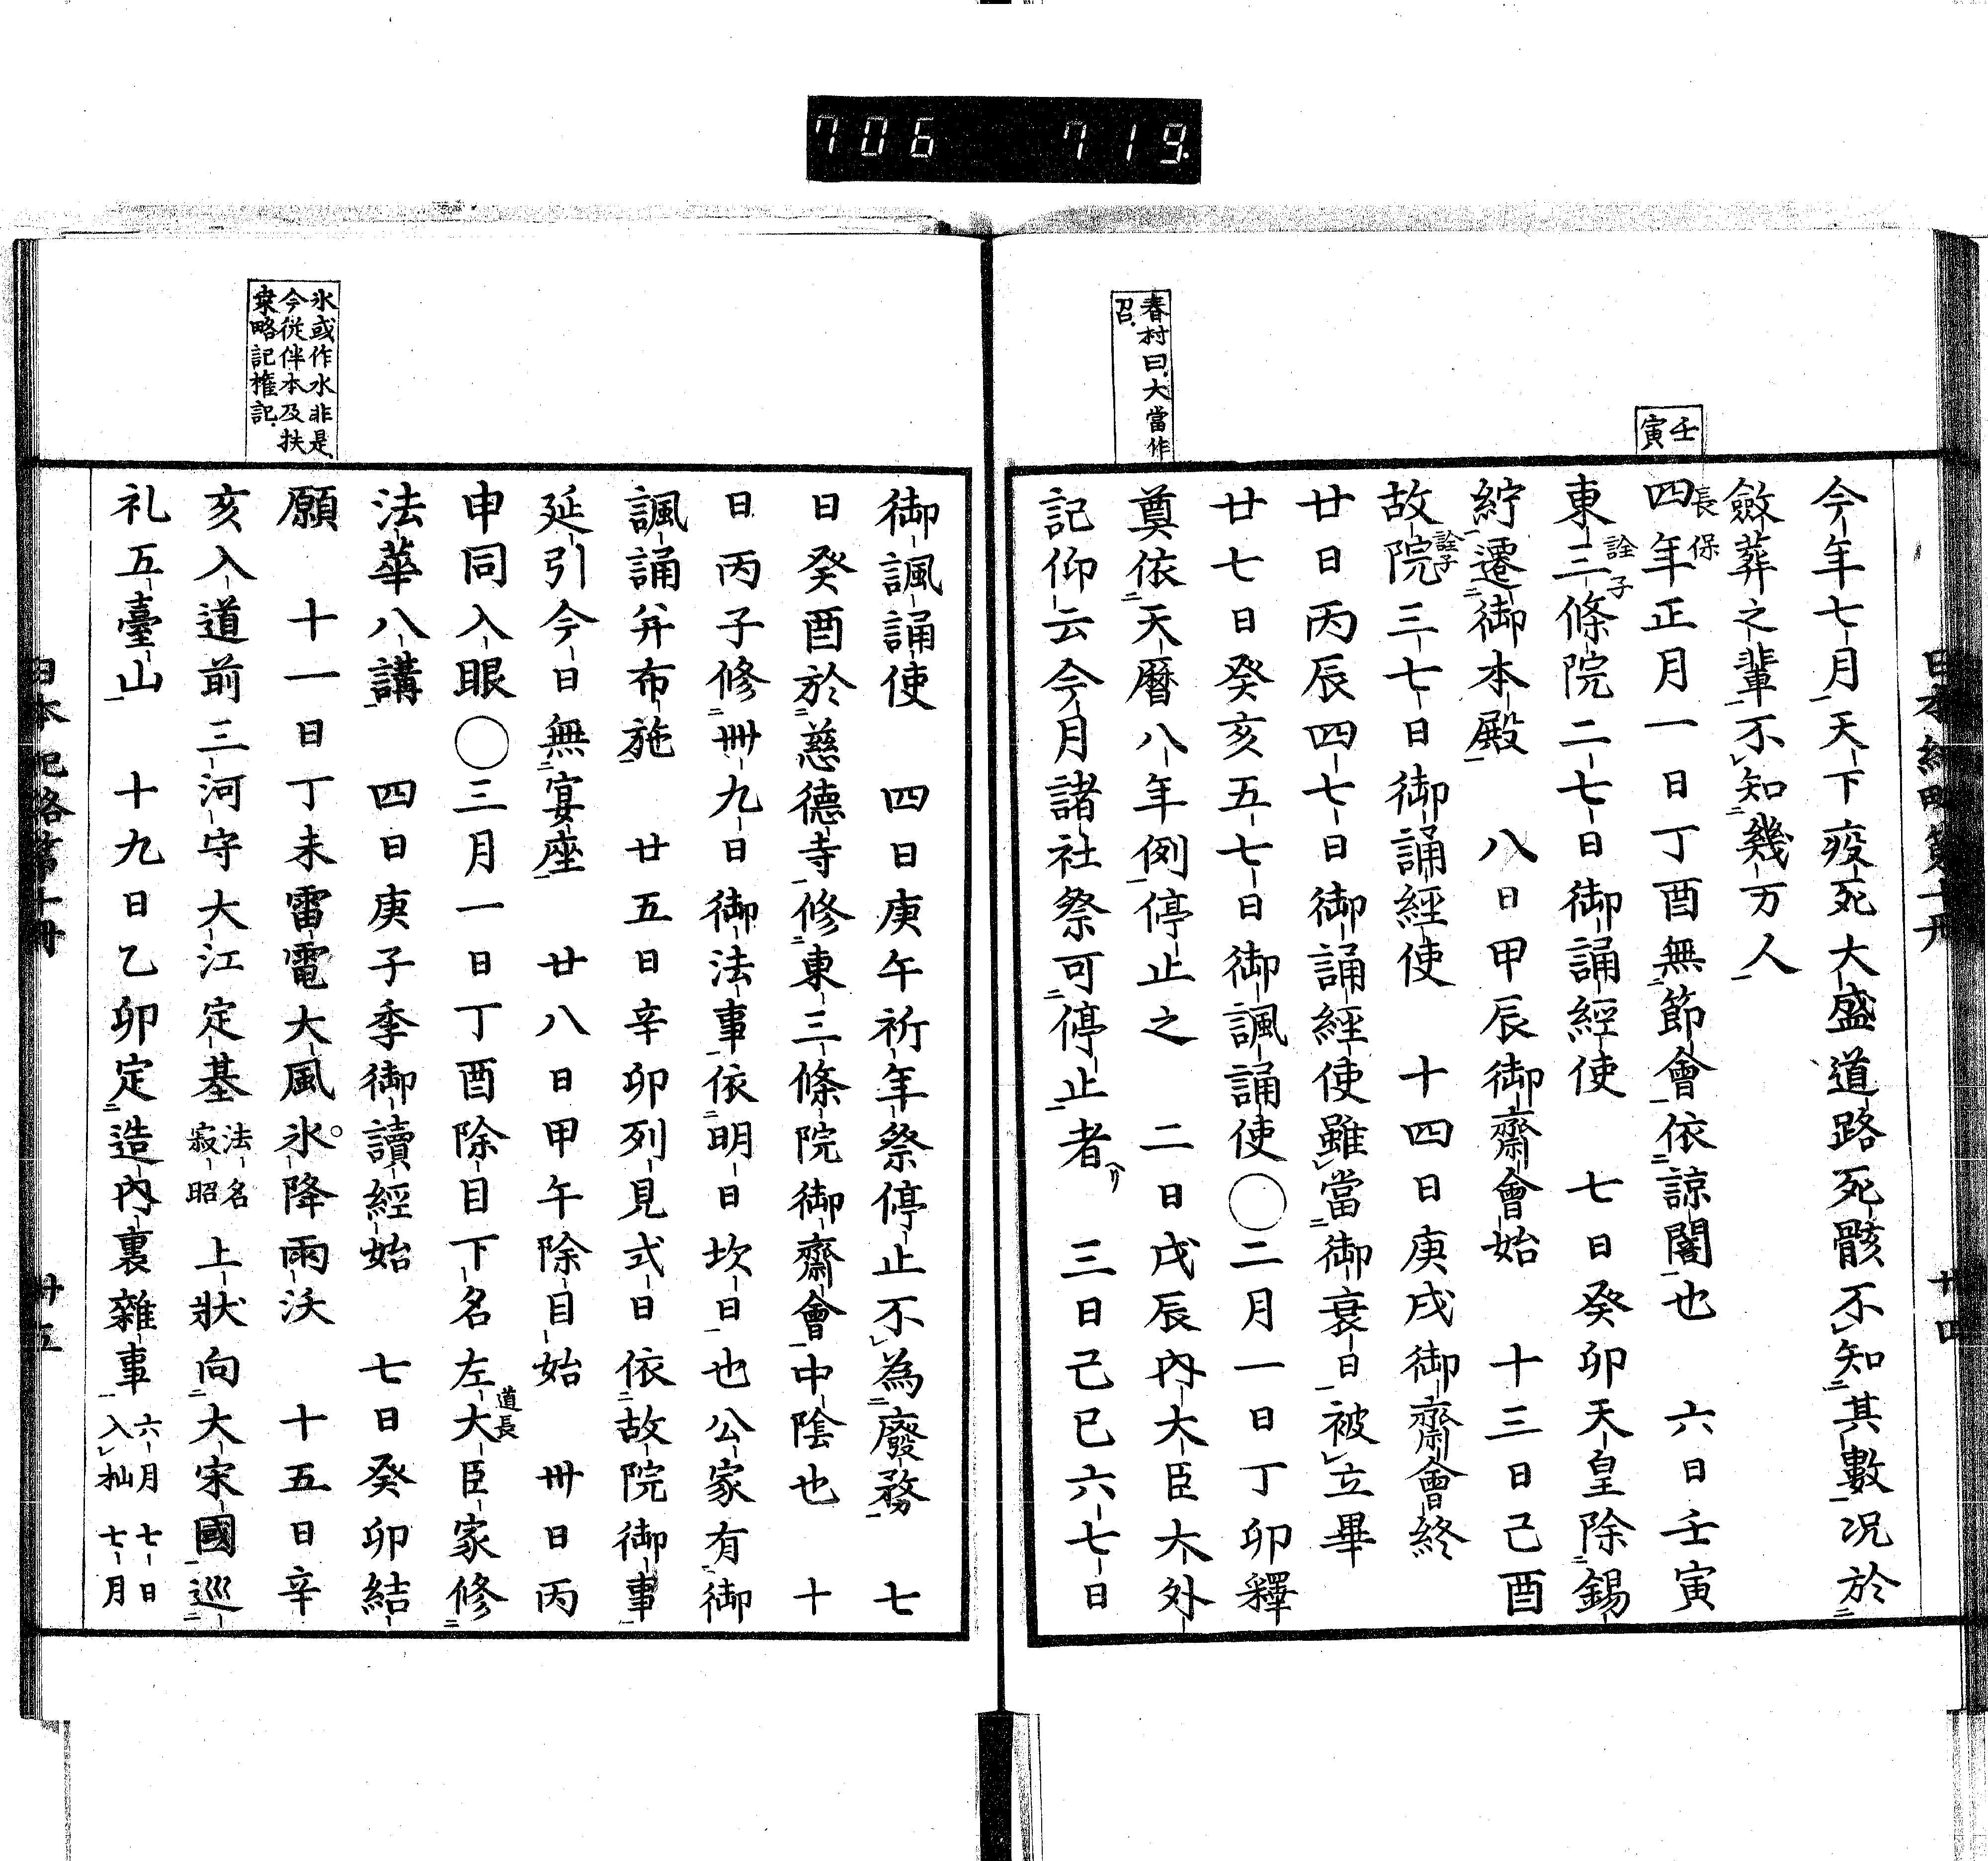 706 719.
日本紀略第十冊 廿四
今年七月天下疫死大盛道路死骸不知其數況於
斂葬之輩不知幾万人
壬寅
長保
四年正月一日丁酉無節會依諒闇也 六日壬寅
詮子
東三條院二七日御誦經使 七日癸卯天皇除錫
紵遷御本殿 八日甲辰御齋會始 十三日己酉
詮子
故院三七日御誦經使 十四日庚戌御齋會終
廿日丙辰四七日御誦經使雖當御衰日被立畢
廿七日癸亥五七日御諷誦使〇二月一日丁卯釋
春村曰大當作召
奠依天曆八年例停止之 二日戊辰內大臣大外
記仰云今月諸社祭可停止者 三日己巳六七日
御諷誦使 四日庚午祈年祭停止不為廢務 七
日癸酉於慈德寺修東三條院御齋會中陰也 十
日丙子修卌九日御法事依明日坎日也公家有御
諷誦并布施 廿五日辛卯列見式日依故院御事
延引今日無宴座 廿八日甲午除目始 卅日丙
申同入眼〇三月一日丁酉除目下名左大臣家修
道長
法華八講 四日庚子季御讀經始 七日癸卯結
氷或作水非是
今從伴本及扶
桒略記權記
願 十一日丁未雷電大風氷降雨沃 十五日辛
亥入道前三河守大江定基法名寂昭上狀向大宋國巡
礼五臺山 十九日乙卯定造內裏雜事六月七日入杣七月
日本紀略第十冊 廿五